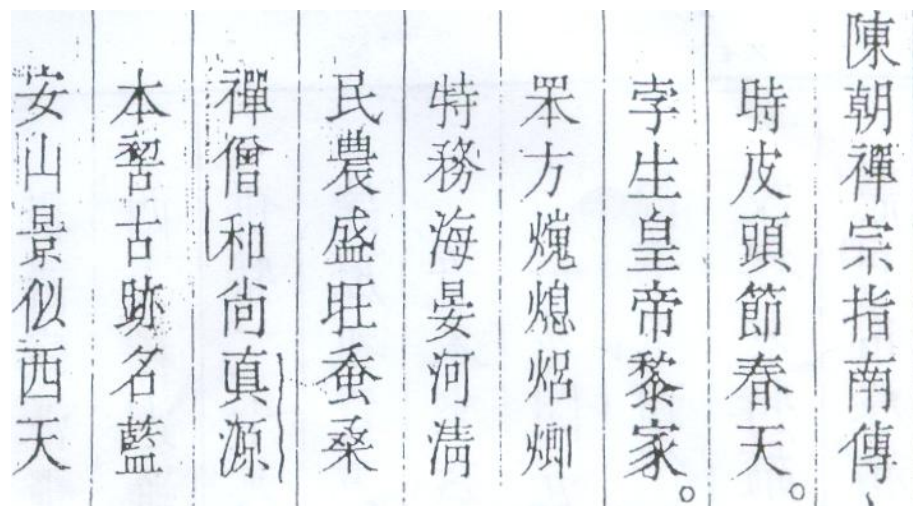 陳朝禪宗指南傳
時皮頭節春天。
孛生皇帝黎家。
𦊛方熄
特務海晏河清
民農盛旺蚕桑
禪僧和尚真源
本古跡名藍
安山景似西天